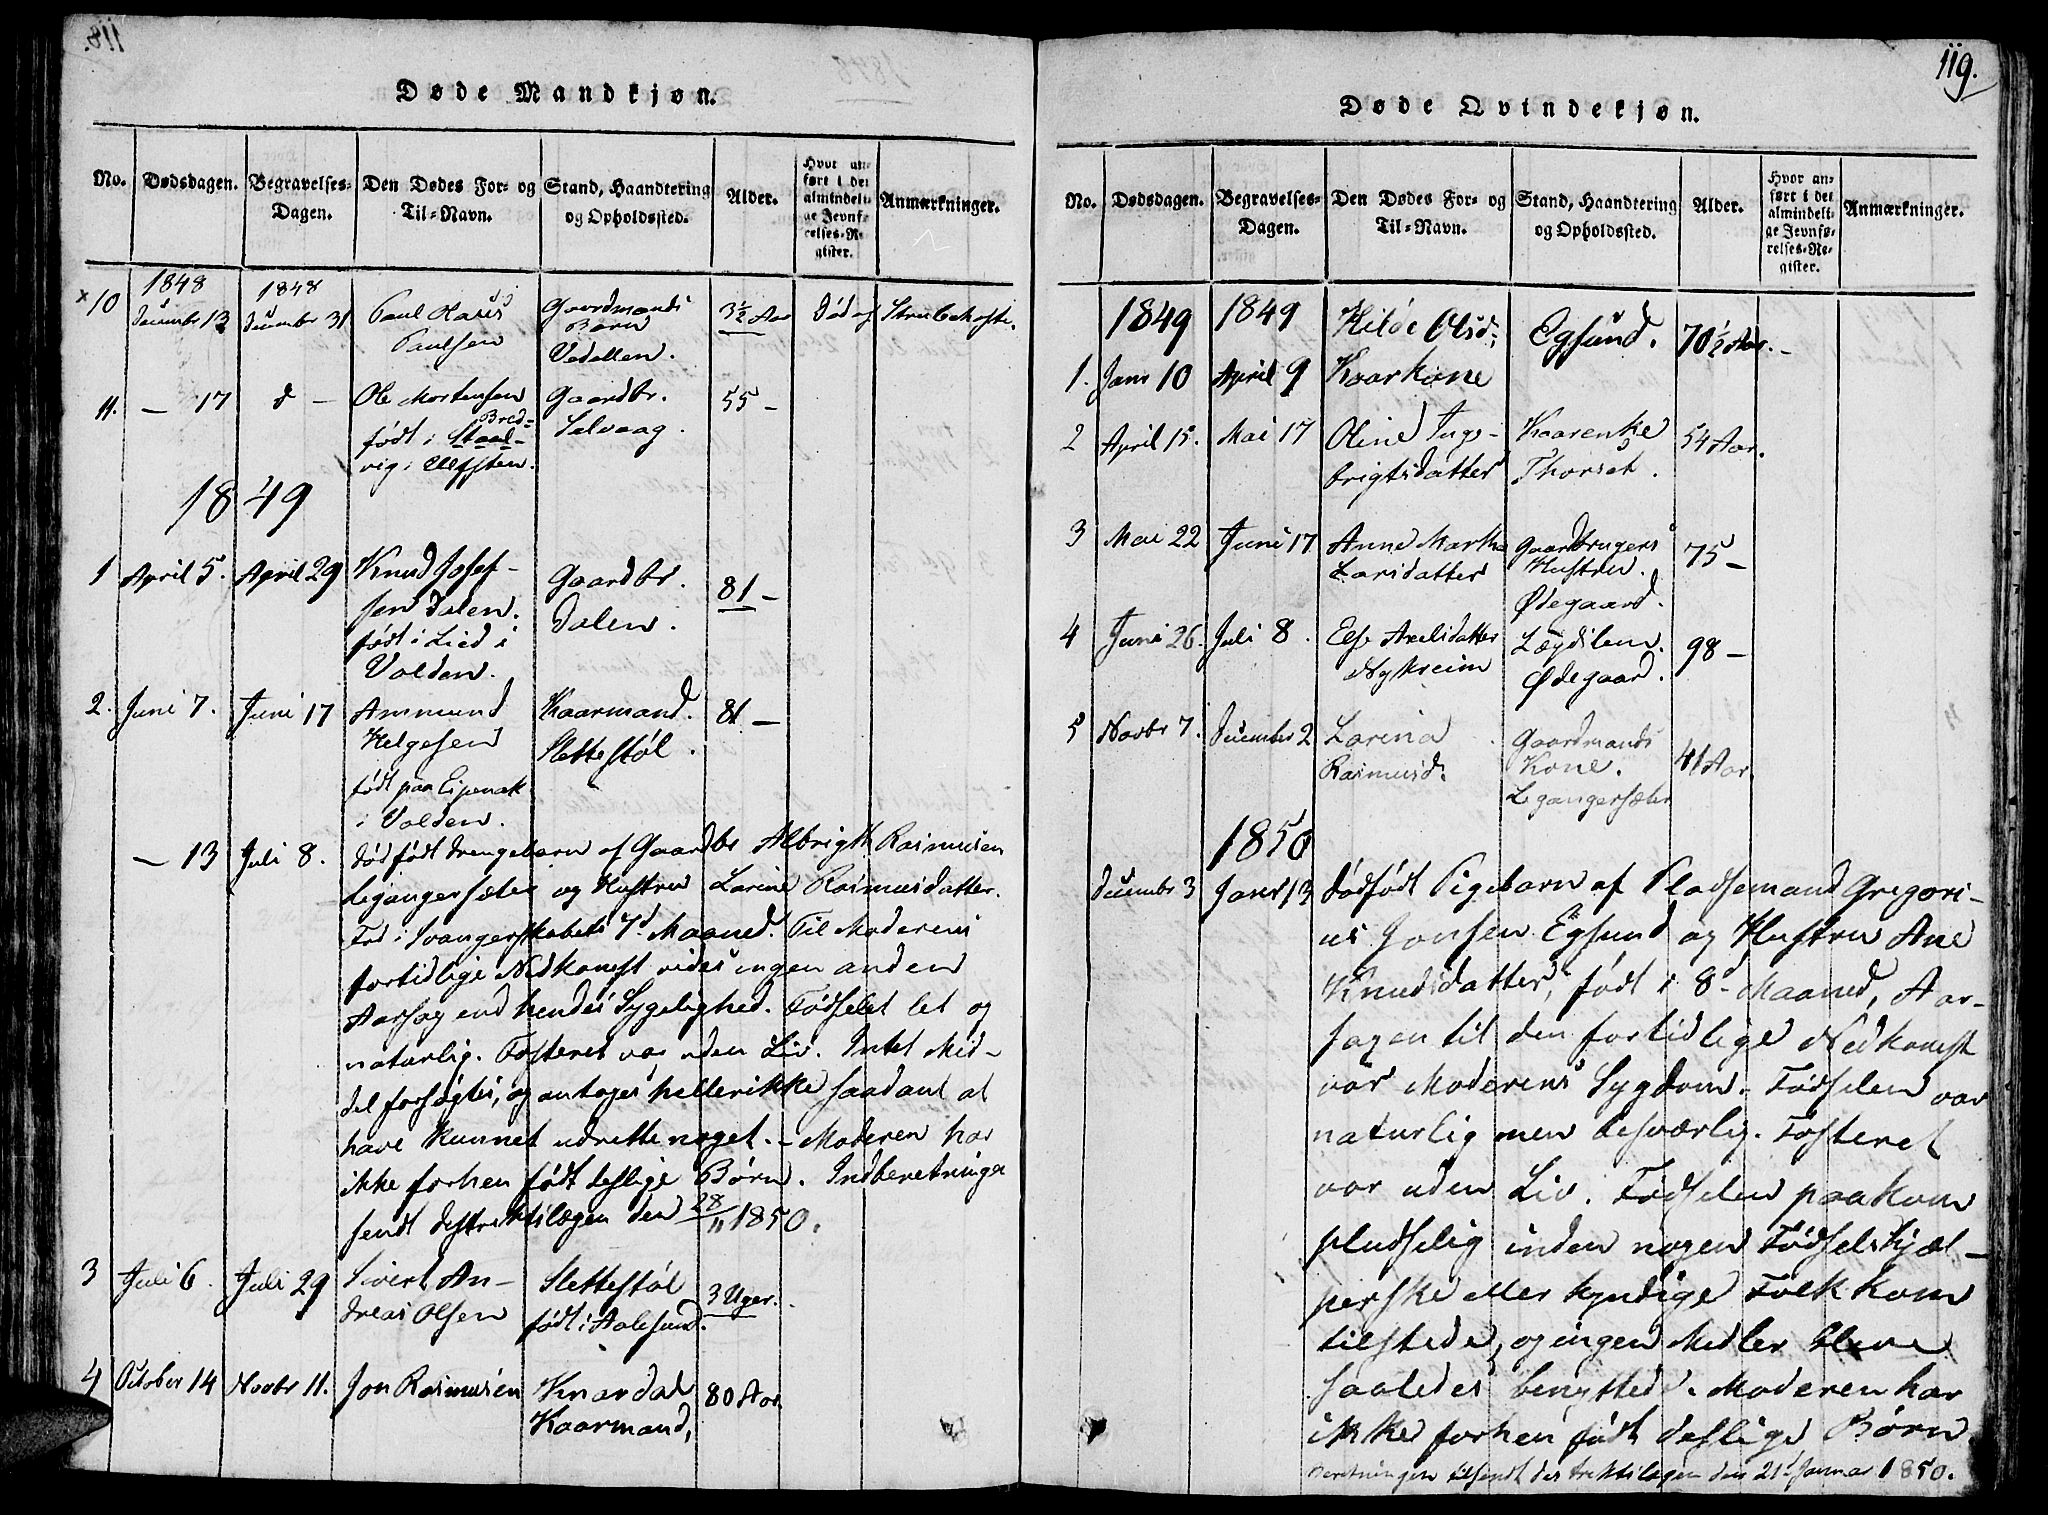 118.
Døde Mandkjøn.
No. Dødsdagen. Begravelses-Dagen. Den Dødes For- og Til-Navn. Stand, Haandtering og Opholdssted. Alder. Hvor anført i det almindelige Jevnførelses-Register. Anmærkninger.
1848 1848
10 Decembr 13 Decembr 31 Paul Gaardmands 3½ Aar Død af Strubehoste.
Paulsen Barn
Vedallen.
11. — 17 d — Ole Mortensen Gaardbr. 55 —
født i Bred- Selvaag.
vig i
1849
1 April 5. April 29 Knud Josef- Gaardbr. 81 —
sen Dalen. Dalen.
født i Lied i
Volden.
2. Juni 7. Juni 17 Ammund Kaarmand. 81 —
Helgesen Slettestøl.
født paa
i Volden.
— 13 Juli 8. Dødfødt Drengebarn af Gaardbr Albrigth Rasmusen
Legangersæter og Hustru Larine Rasmusdatter.
Fød i Svangerskabets 7d Maaned. Til Moderens
fortidlige Nedkomst vides ingen anden
Aarsag end hendes Sygelighed. Fødselet let og
naturlig. Fosteret var uden Liv. Intet Mid-
del forsøgtes, og antages heller ikke saadant at
have kunnet udrette noget. — Moderen har
ikke forhen født deslige Børn. Indberetningen
sendt destriktslægen den 28/11 1850.
3 Juli 6. Juli 29 Sivert An- Slettestøl 3 Uger.
dreas Olsen født i Aalesund.
4 October 14 Novbr 11. Jon Rasmusen Knardal 80 Aar.
Kaarmand,
119.
Døde Qvindekjøn.
No. Dødsdagen. Begravelses-Dagen. Den Dødes For- og Til-Navn. Stand, Haandtering og Opholdssted. Alder. Hvor anført i det almindelige Jevnførelses-Register. Anmærkninger.
1849 1849 Olsd. Egsund. 70½ Aar. —
1. Janr 10 April 9 Kaarkone
2 April 15. Mai 17 Oline Inge- Kaarenke 54 Aar.
brigtsdatter Thorset.
3 Mai 22 Juni 17 Anne Martha Gaardbrugers 75 —
Larsdatter Hustru.
Ødegaard.
4 Juni 26. Juli 8. Else Axelsdatter Lægdslem. 98 —
Nykreim Ødegaard.
5 Novbr 7. December 2 Larina Gaardmands 41 Aar.
Rasmusd. Kone.
Legangersæter
1850
Decembr 3 Janr 13 Dødfødt Pigebarn af Pladsemand Gregori-
us Jonsen Egsund og Hustru Ane
Knudsdatter, født i 8d Maaned, Aar-
sagen til den fortidlige Nedkomst
var Moderens Sygdom. Fødselen var
naturlig men besværlig. Fosteret
var uden Liv. Fødselen paakom
pludselig inden nogen Fødselshjæl-
perske eller kyndige Folk kom
tilstede, og ingen Midler bleve
saaledes benyttede. Moderen har
ikke forhen født deslige Børn
Beretningen tilsendt destriktslægen den 21d Januar 1850.